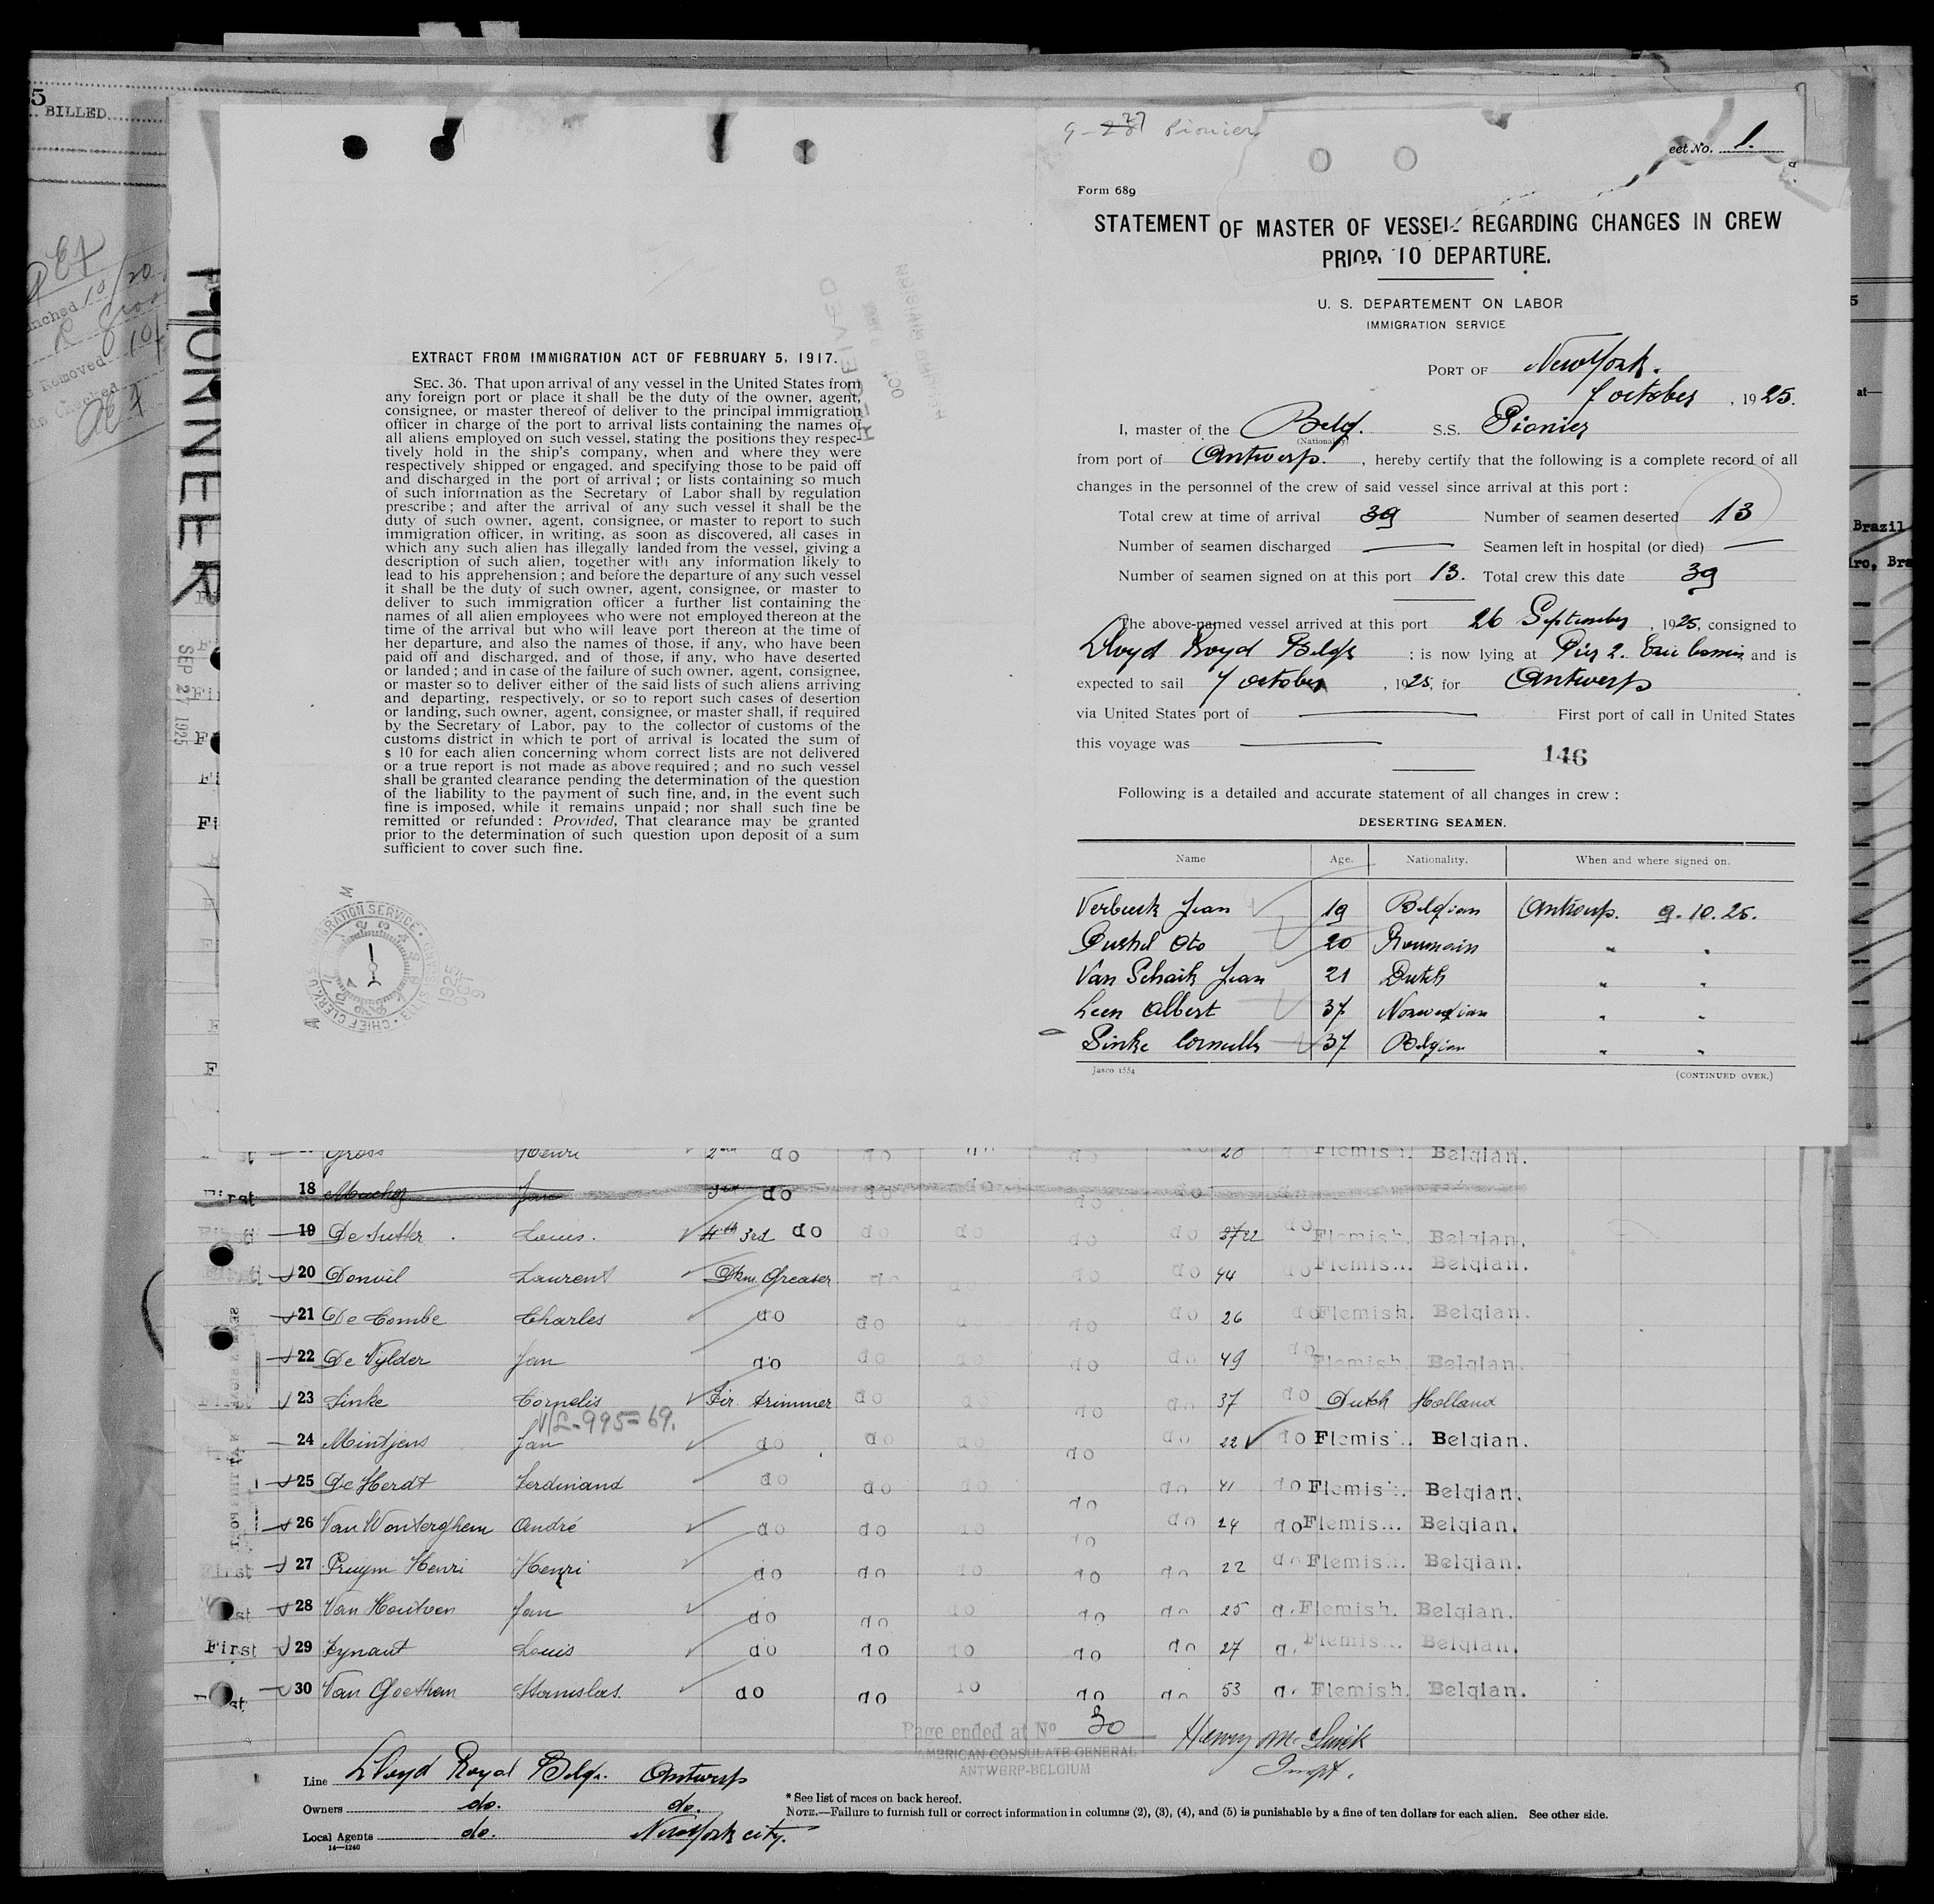 BILLED
PIONEER
SEP 27 1925
EXTRACT FROM IMMIGRATION ACT OF FEBRUARY 5, 1917.
SEC. 36. That upon arrival of any vessel in the United States from
any foreign port or place it shall be the duty of the owner, agent,
consignee, or master thereof of deliver to the principal immigration
officer in charge of the port to arrival lists containing the names of
all aliens employed on such vessel, stating the positions they respec-
tively hold in the ship's company, when and where they were
respectively shipped or engaged, and specifying those to be paid off
and discharged in the port of arrival ; or lists containing so much
of such information as the Secretary of Labor shall by regulation
prescribe ; and after the arrival of any such vessel it shall be the
duty of such owner, agent, consignee, or master to report to such
immigration officer, in writing, as soon as discovered, all cases in
which any such alien has illegally landed from the vessel, giving a
description of such alien, together with any information likely to
lead to his apprehension ; and before the departure of any such vessel
it shall be the duty of such owner, agent, consignee, or master to
deliver to such immigration officer a further list containing the
names of all alien employees who were not employed thereon at the
time of the arrival but who will leave port thereon at the time of
her departure, and also the names of those, if any, who have been
paid off and discharged, and of those, if any, who have deserted
or landed ; and in case of the failure of such owner, agent, consignee,
or master so to deliver either of the said lists of such aliens arriving
and departing, respectively, or so to report such cases of desertion
or landing, such owner, agent, consignee, or master shall, if required
by the Secretary of Labor, pay to the collector of customs of the
customs district in which te port of arrival is located the sum of
$ 10 for each alien concerning whom correct lists are not delivered
or a true report is not made as above required ; and no such vessel
shall be granted clearance pending the determination of the question
of the liability to the payment of such fine, and, in the event such
fine is imposed, while it remains unpaid ; nor shall such fine be
remitted or refunded : Provided, That clearance may be granted
prior to the determination of such question upon deposit of a sum
sufficient to cover such fine.
Pionier
eet No. 1.
Form 689
STATEMENT OF MASTER OF VESSEL REGARDING CHANGES IN CREW
PRIOR TO DEPARTURE.
U. S. DEPARTEMENT ON LABOR
IMMIGRATION SERVICE
PORT OF New York.
7 october , 1925.
I, master of the Belg. S.S. Pionier
(Nationality)
from port of Antwerp. , hereby certify that the following is a complete record of all
changes in the personnel of the crew of said vessel since arrival at this port :
Total crew at time of arrival 39 Number of seamen deserted 13
Number of seamen discharged Seamen left in hospital (or died)
Number of seamen signed on at this port 13. Total crew this date 39
The above-named vessel arrived at this port 26 September , 1925, consigned to
Lloyd Royal Belge ; is now lying at Pier 2. Erie bassin and is
expected to sail 7 october , 1925, for Antwerp
via United States port of First port of call in United States
this voyage was
146
Following is a detailed and accurate statement of all changes in crew :
DESERTING SEAMEN.
Name Age. Nationality. When and where signed on.
Jean 19 Belgian Antwerp. 9. 10. 25.
Oto 20 Roumain " "
Van Schaik Jean 21 Dutch " "
Leen Albert 37 Norwegian " "
Sinke Cornelis 37 Belgian " "
Jasco 1554 (CONTINUED OVER.)
Gross Henri 2nd do Flemish. Belgian.
First 18 Jan 3rd do
19 De Sutter Louis. 4th 3rd do do do do do 37 22 do Flemish. Belgian.
20 Donvil Laurent Dkm Greaser do do do do 44 do Flemish. Belgian.
21 De Combe Charles do do do do do 26 do Flemish. Belgian.
22 De Vylder Jan do do do do do 49 do Flemish. Belgian.
First 23 Sinke Cornelis Fir. trimmer do do do do 37 do Dutch Holland
VL-995=69.
24 Mintjens Jan do do do do do 22 do Flemish. Belgian.
25 De Herdt Ferdinand do do do do do 41 do Flemish. Belgian.
26 Van Wonterghem André do do do do do 24 do Flemish. Belgian.
First 27 Pruym Henri Henri do do do do do 22 do Flemish. Belgian.
28 Van Houtven Jan do do do do do 25 Flemish. Belgian.
First 29 Fynaut Louis do do do do do 27 Flemish. Belgian.
30 Van Goethem Stanislas. do do do do do 53 Flemish. Belgian.
Page ended at No 30
AMERICAN CONSULATE GENERAL
ANTWERP-BELGIUM
Henry
Inspt.
Line Lloyd Royal Belge. Antwerp
Owners do. do.
Local Agents do. New York city.
14—1240
* See list of races on back hereof.
NOTE.—Failure to furnish full or correct information in columns (2), (3), (4), and (5) is punishable by a fine of ten dollars for each alien. See other side.
Brazil